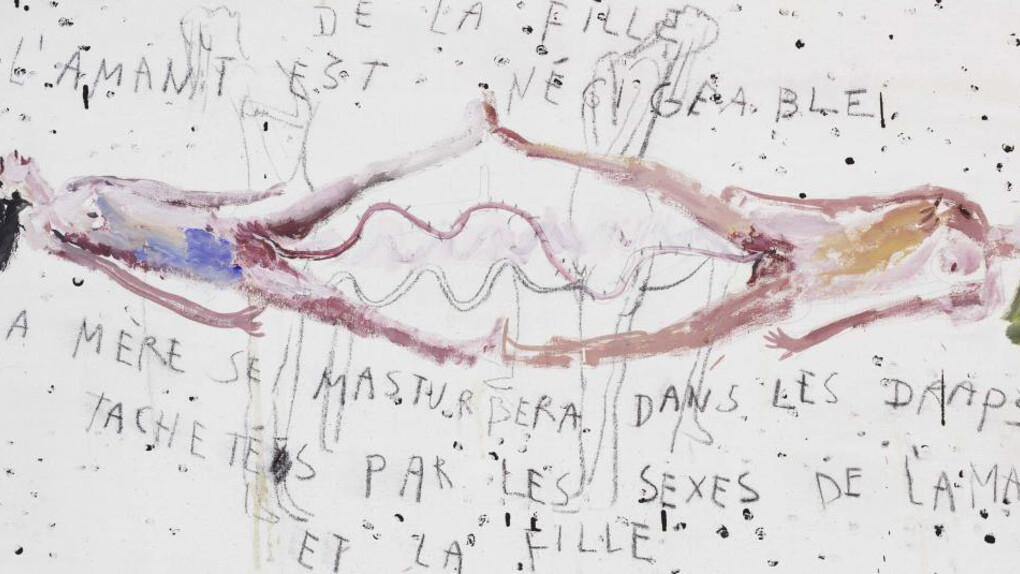 DE LA FILLE
L'AMANT EST NÉGLIGEABLE
A MÈRE SE MASTURBERA DANS LES DRAPS
TACHETÉES PAR LES SEXES DE L'AMA
ET LA FILLE